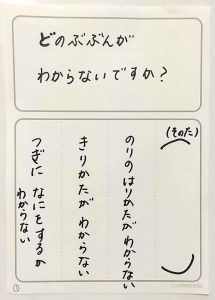 どのぶぶんが
わからないですか?
(そのた)
のりのはりかたがわからない
きりかたがわからない
つぎになにをするか
わからない
①